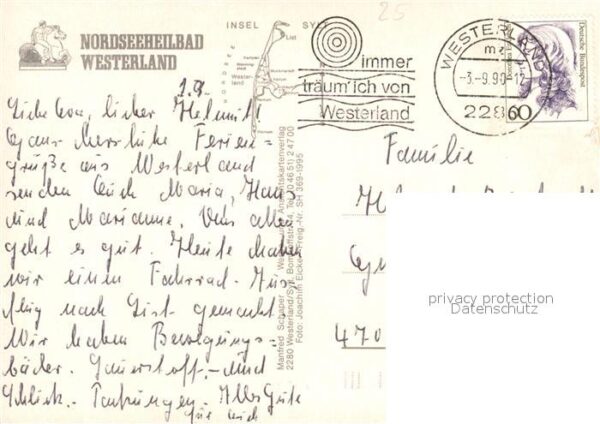 25
NORDSEEHEILBAD
WESTERLAND
INSEL SYLT
List
NORDSEE
Wester-
land
immer
träum' ich von
Westerland
WESTERLAND
mz
-3.-9.90-12
2280
Deutsche Bundespost
60
1.9.
lieber Helmut!
Ganz herzliche Ferien-
grüße aus Westerland
senden Euch Maria, Hans
und Marianne. Uns allen
geht es gut. Heute haben
wir einen Fahrrad-Aus
flug nach List gemacht.
Wir haben Bewegungs-
bäder. Sauerstoff- und
Schlick-Packungen. Alles Gute
für Euch
Manfred Schaper Ansichtskartenverlag
2280 Westerland/Sylt, Tel. (0 46 51) 2 47 00
Foto: Joachim Eicke, Freig.-Nr. SH 369-1995
Familie
470
privacy protection
Datenschutz